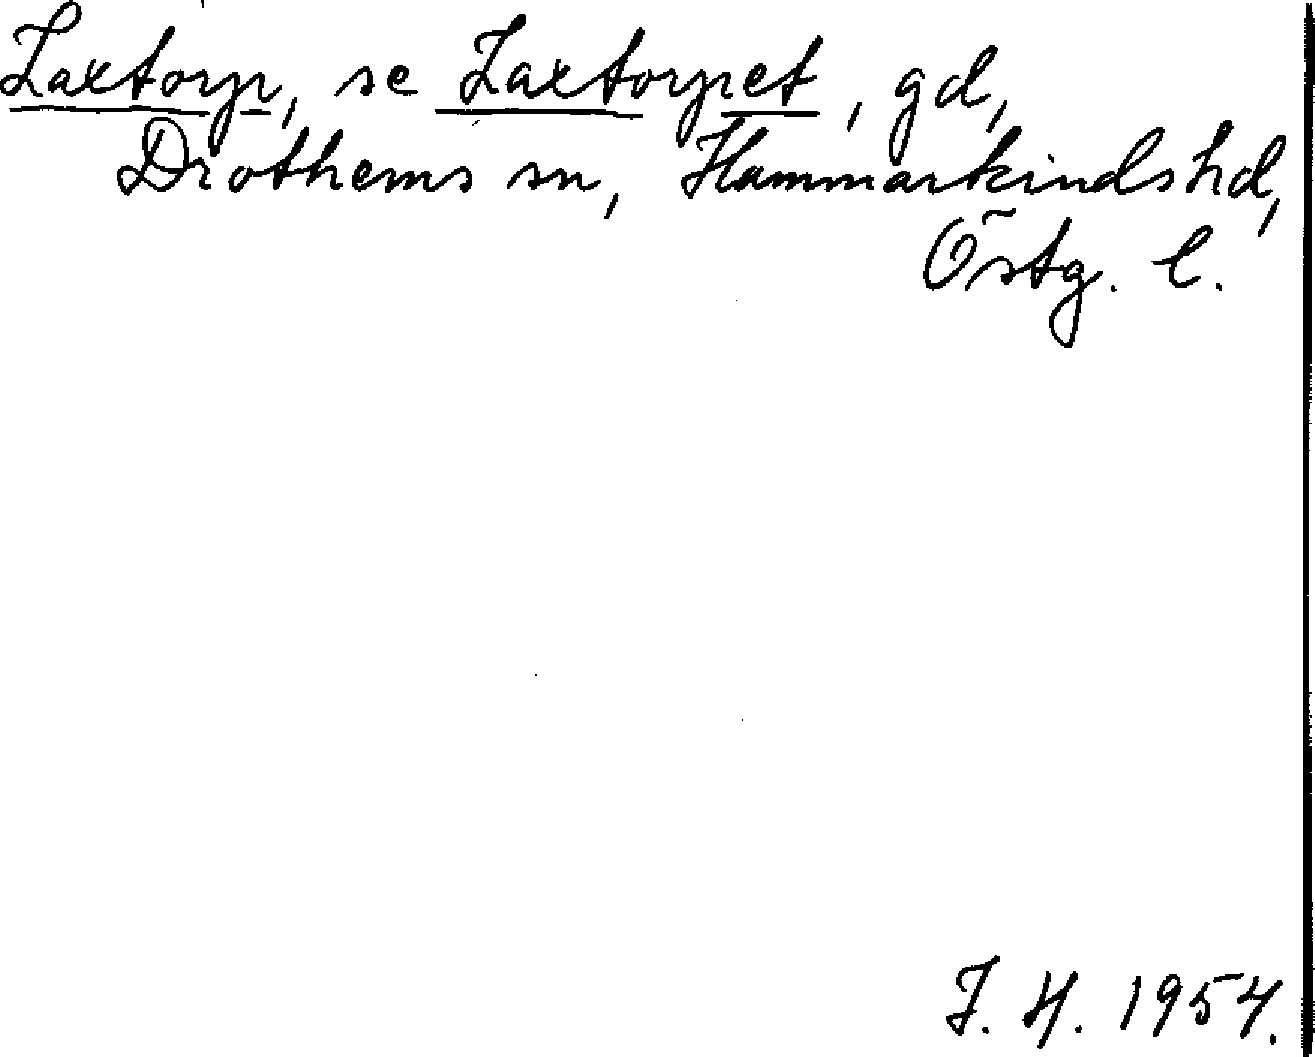 Laxtorp, se Laxtorpet, gd,
Drothems sn, Hammarkinds hd,
Östg. l.
J. H. 1954.